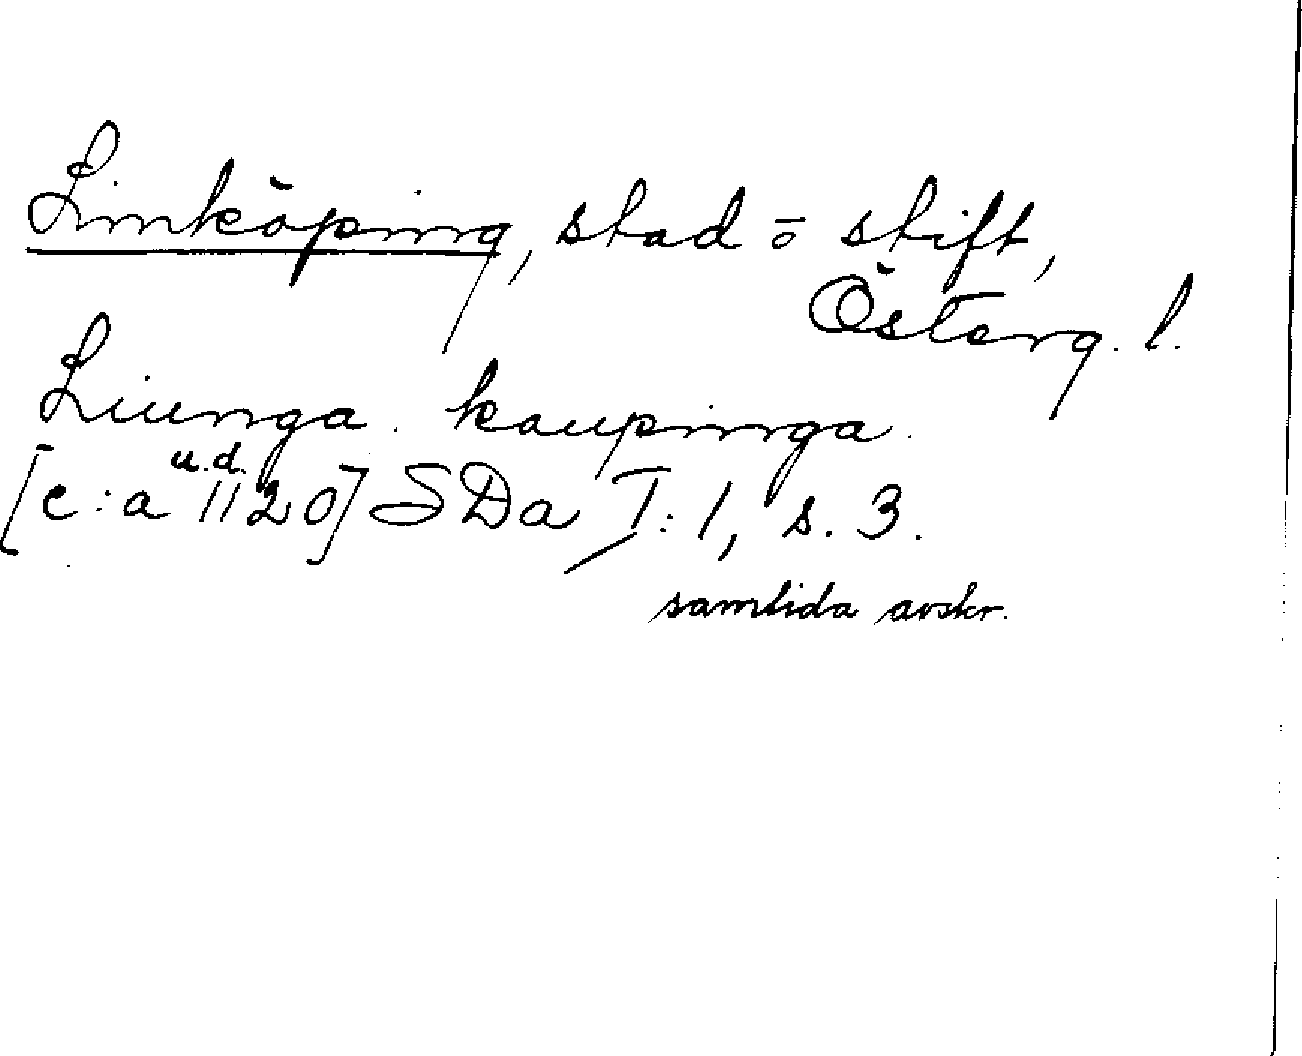 Linköping, stad ō stift,
Österg. l.
Liunga. kaupinga.
u.d.
[c:a 1120] SDa I:1, s. 3.
samtida avskr.